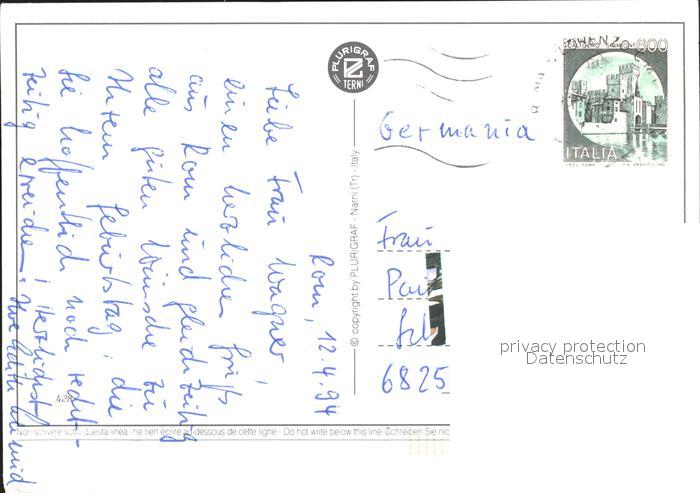 Rom, 12.4.94
Liebe Frau Wagner,
einen herzlichen Gruß
aus Rom und gleichzeitig
alle guten Wünsche zu
Ihrem Geburtstag, die
Sie hoffentlich noch recht-
zeitig erreichen; Herzlichst
Ihre
PLURIGRAF
TERNI
© copyright by PLURIGRAF - Narni (Tr) - Italy
600
ITALIA
Germania
Frau
6825
privacy protection
Datenschutz
428
Non scrivere sotto questa linea - ne rien écrire au-dessous de cette ligne - Do not write below this line - Schreiben Sie nic